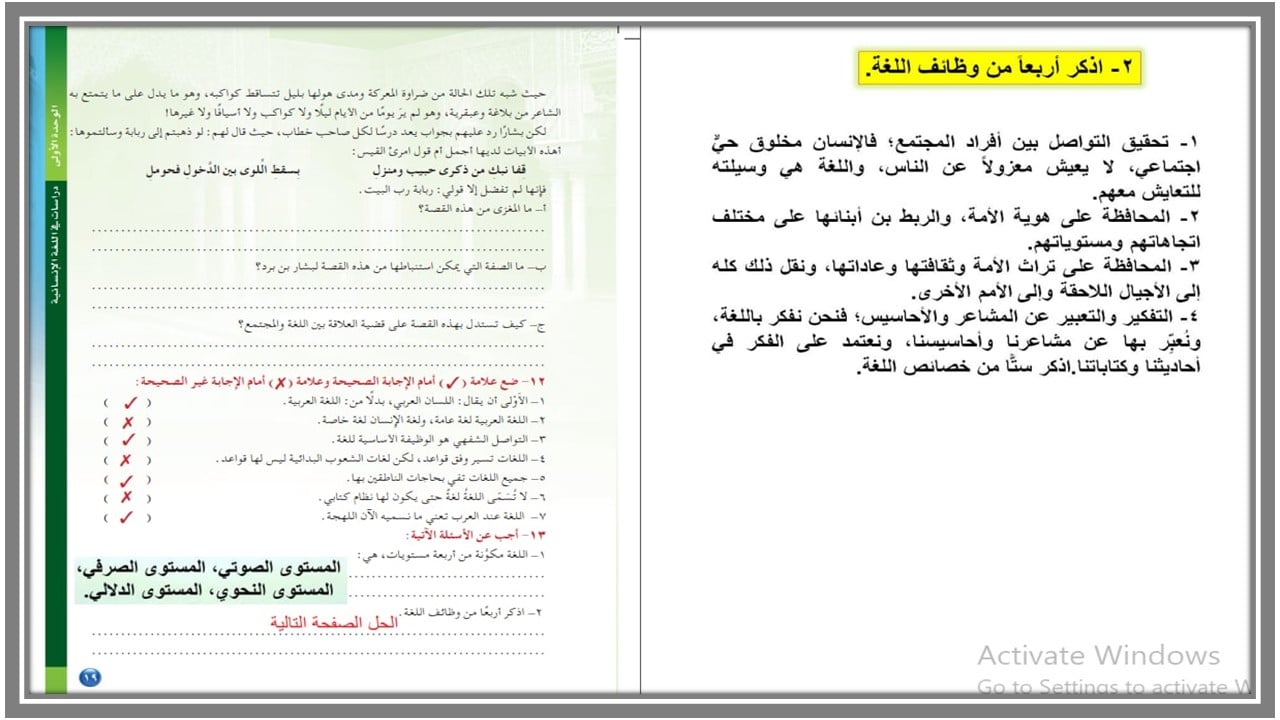 ٢- اذكر أربعاً من وظائف اللغة.
١- تحقيق التواصل بين أفراد المجتمع؛ فالإنسان مخلوق حيٌّ
اجتماعي، لا يعيش معزولاً عن الناس، واللغة هي وسيلته
للتعايش معهم.
٢- المحافظة على هوية الأمة، والربط بن أبنائها على مختلف
اتجاهاتهم ومستوياتهم.
٣- المحافظة على تراث الأمة وثقافتها وعاداتها، ونقل ذلك كله
إلى الأجيال اللاحقة وإلى الأمم الأخرى.
٤- التفكير والتعبير عن المشاعر والأحاسيس؛ فنحن نفكر باللغة،
ونُعبِّر بها عن مشاعرنا وأحاسيسنا، ونعتمد على الفكر في
أحاديثنا وكتاباتنا.اذكر ستًّا من خصائص اللغة.
Activate Windows
Go to Settings to activate W
حيث شبه تلك الحالة من ضراوة المعركة ومدى هولها بليل تتساقط كواكبه، وهو ما يدل على ما يتمتع به
الشاعر من بلاغة وعبقرية، وهو لم يرَ يومًا من الأيام ليلًا ولا كواكب ولا أسيافًا ولا غيرها!
لكن بشارًا رد عليهم بجواب يعد درسًا لكل صاحب خطاب، حيث قال لهم: لو ذهبتم إلى ربابة وسألتموها:
أهذه الأبيات لديها أجمل أم قول امرئ القيس:
قِفا نبك من ذكرى حبيب ومنزلِ بسِقطِ اللّوى بين الدَّخول فحومل
فإنها لم تفضل إلا قولي: ربابة رب البيت.
أ- ما المغزى من هذه القصة؟
ب- ما الصفة التي يمكن استنباطها من هذه القصة لبشار بن برد؟
ج- كيف تستدل بهذه القصة على قضية العلاقة بين اللغة والمجتمع؟
١٢- ضع علامة (✓) أمام الإجابة الصحيحة وعلامة (✗) أمام الإجابة غير الصحيحة:
١- الأَوْلى أن يقال: اللسان العربي، بدلًا من: اللغة العربية. ( ✓ )
٢- اللغة العربية لغة عامة، ولغة الإنسان لغة خاصة. ( ✗ )
٣- التواصل الشفهي هو الوظيفة الأساسية للغة. ( ✓ )
٤- اللغات تسير وفق قواعد، لكن لغات الشعوب البدائية ليس لها قواعد. ( ✗ )
٥- جميع اللغات تفي بحاجات الناطقين بها. ( ✓ )
٦- لا تُسَمّى اللغةُ لغةً حتى يكون لها نظام كتابي. ( ✗ )
٧- اللغة عند العرب تعني ما نسميه الآن اللهجة. ( ✓ )
١٣- أجب عن الأسئلة الآتية:
١- اللغة مكوَّنة من أربعة مستويات، هي:
المستوى الصوتي، المستوى الصرفي،
المستوى النحوي، المستوى الدلالي.
٢- اذكر أربعًا من وظائف اللغة.
الحل الصفحة التالية
١٩
الوحدة الأولى
دراسات في اللغة الإنسانية